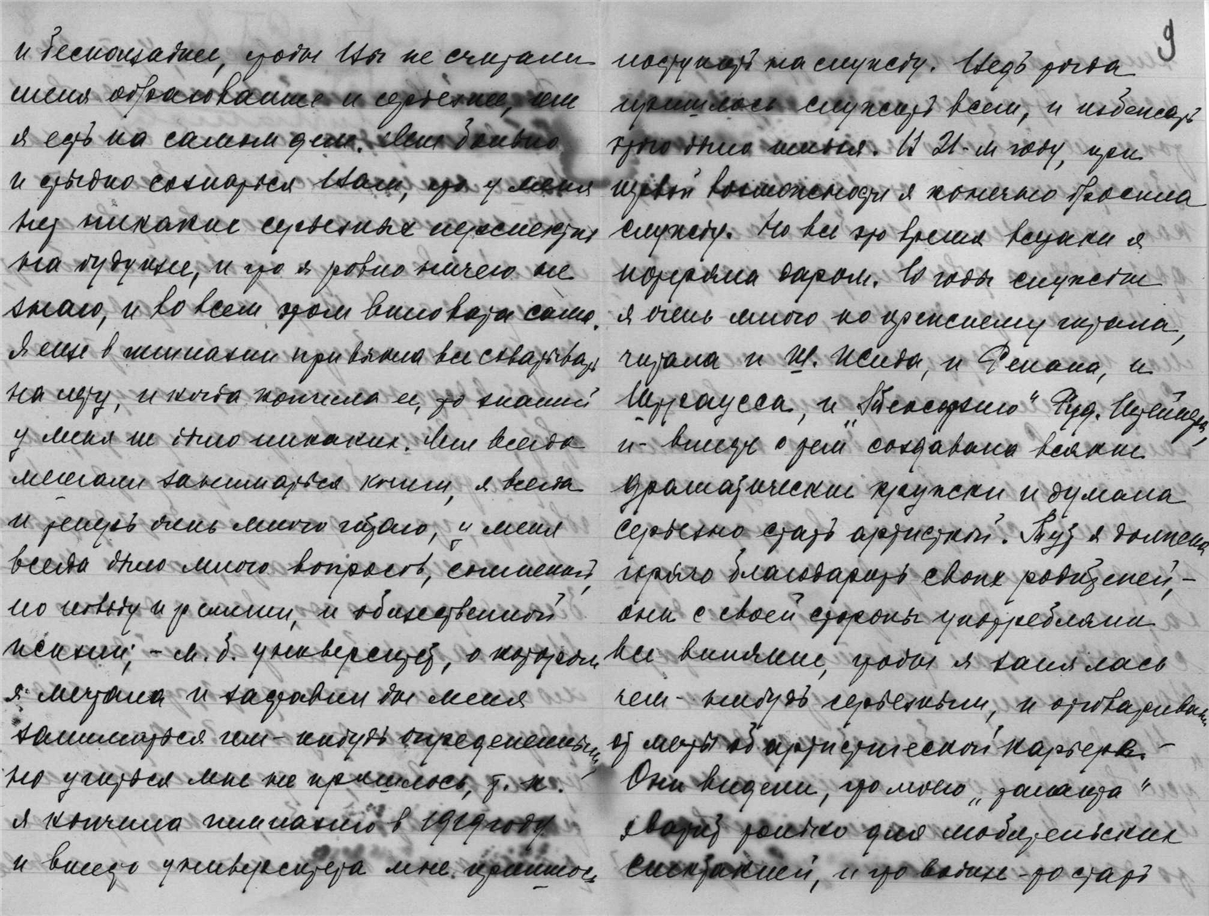 и беспощаднее, чтобы Вы не считали
меня образованнее и серьезнее, чем
я есть на самом деле. Мне больно
и стыдно сознаться Вам, что у меня
нет никаких серьезных перспектив
на будущее, и что я ровно ничего не
знаю, и во всем этом виновата сама.
Я еще в гимназии привыкла все схватывать
на лету, и когда кончила ее, то знаний
у меня не было никаких. Мне всегда
мешали заниматься книги, я всегда
и теперь очень много читаю, у меня
всегда было много вопросов, сомнений,
по поводу и религии, и общественной
жизни; – м. б. университет, о котором
я мечтала и заставил бы меня
заниматься чем-нибудь определенным,
но учиться мне не пришлось, т. к.
я кончила гимназию в 1919 году
и вместо университета мне пришлось
9
поступать на службу. Ведь тогда
пришлось служить всем, и избежать
этого было нельзя. В 21-м году, при
первой возможности я конечно бросила
службу. Но все это время всетаки я
потеряла даром. В годы службы
я очень много по прежнему читала,
читала и Ш. Жида, и Ренана, и
Штраусса, и "Теософию" Руд. Штейнера,
и – вместе с тем создавала всякие
драматические кружки и думала
серьезно стать артисткой. Тут я должна
горячо благодарить своих родителей, –
они с своей стороны употребляли
все влияние, чтобы я занялась
чем-нибудь серьезным, и отговаривали
от мечты об артистической карьере. –
Они видели, что моего "таланта"
хватит только для любительских
спектаклей, и что